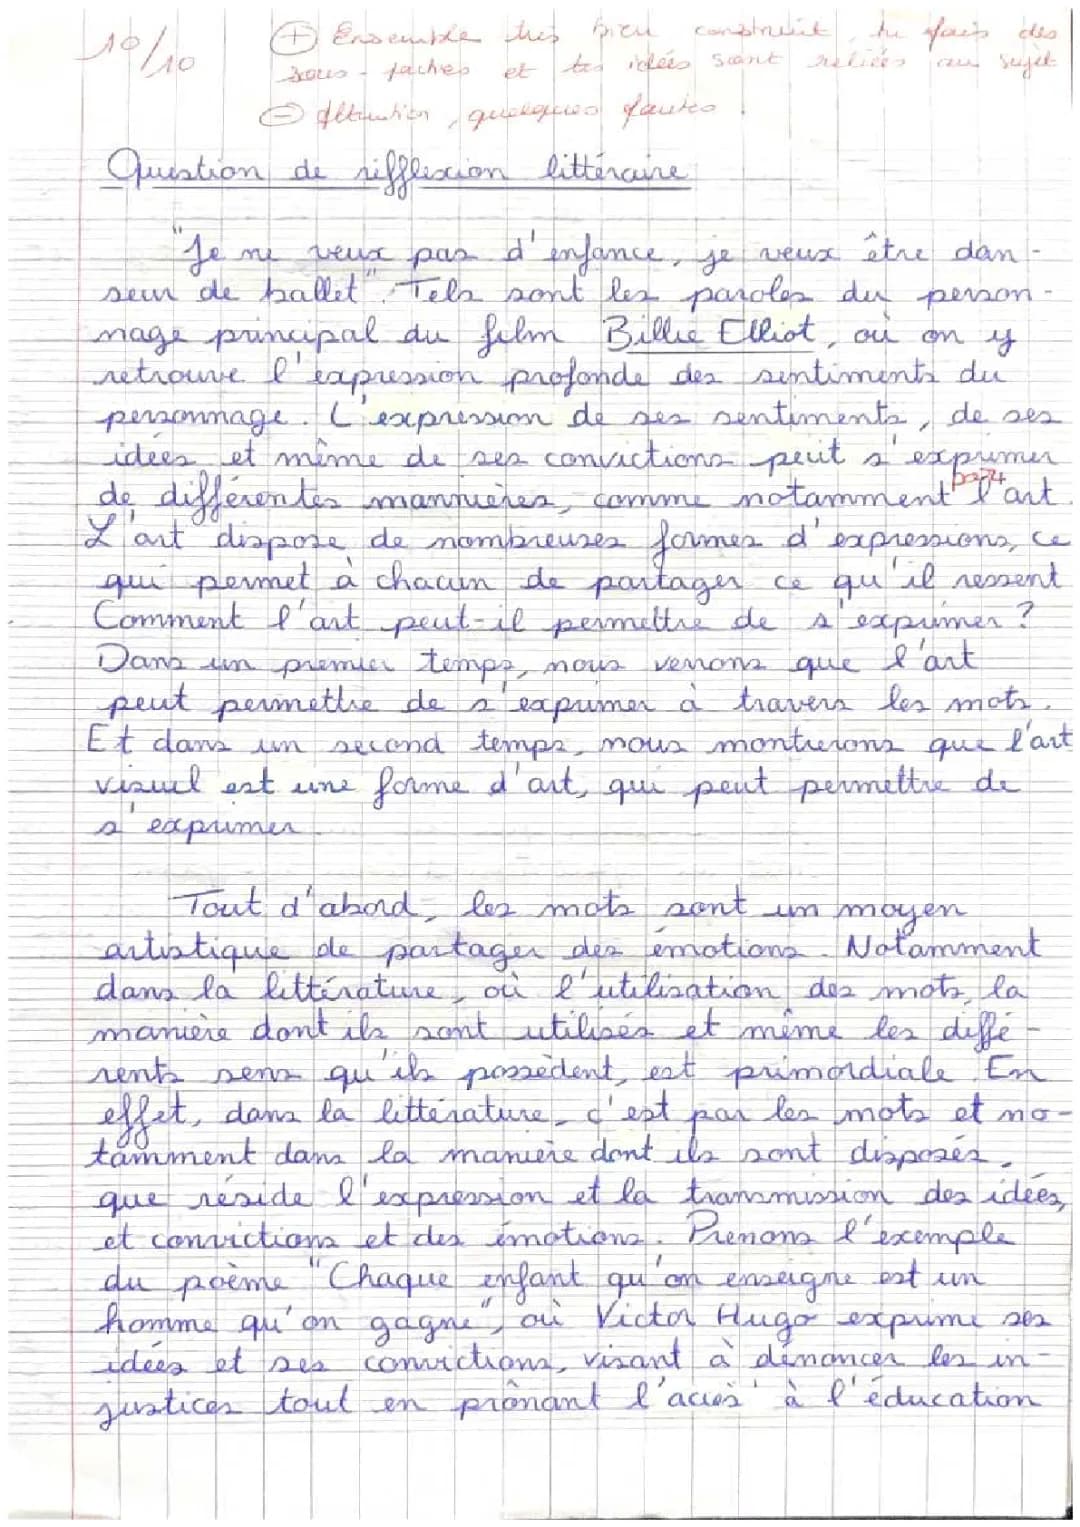 10/10
+ Ensemble très bien construit, tu fais des
sous-taches et tes idées sont reliées au sujet
- Attention, quelques fautes !
Question de réfflexion littéraire
"Je ne veux pas d'enfance, je veux être dan-
seur de ballet". Tels sont les paroles du person-
nage principal du film Billie Elliot, où on y
retrouve l'expression profonde des sentiments du
personnage. L'expression de ses sentiments, de ses
idées et même de ses convictions peut s'exprimer
de différentes mannières, comme notamment par l'art.
L'art dispose de nombreuses formes d'expressions, ce
qui permet à chacun de partager ce qu'il ressent
Comment l'art peut-il permettre de s'exprimer ?
Dans un premier temps, nous verrons que l'art
peut permettre de s'exprimer à travers les mots.
Et dans un second temps, nous montrerons que l'art
visuel est une forme d'art, qui peut permettre de
s'exprimer
Tout d'abord, les mots sont un moyen
artistique de partager des émotions. Notamment
dans la littérature, où l'utilisation des mots, la
manière dont ils sont utilisés et même les diffé-
rents sens qu'ils possèdent, est primordiale. En
effet, dans la littérature, c'est par les mots et no-
tamment dans la manière dont ils sont disposés,
que réside l'expression et la transmission des idées,
et convictions et des émotions. Prenons l'exemple
du poème "Chaque enfant qu'on enseigne est un
homme qu'on gagne", où Victor Hugo exprime ses
idées et ses convictions, visant à dénoncer les in-
justices tout en prônant l'accès à l'éducation